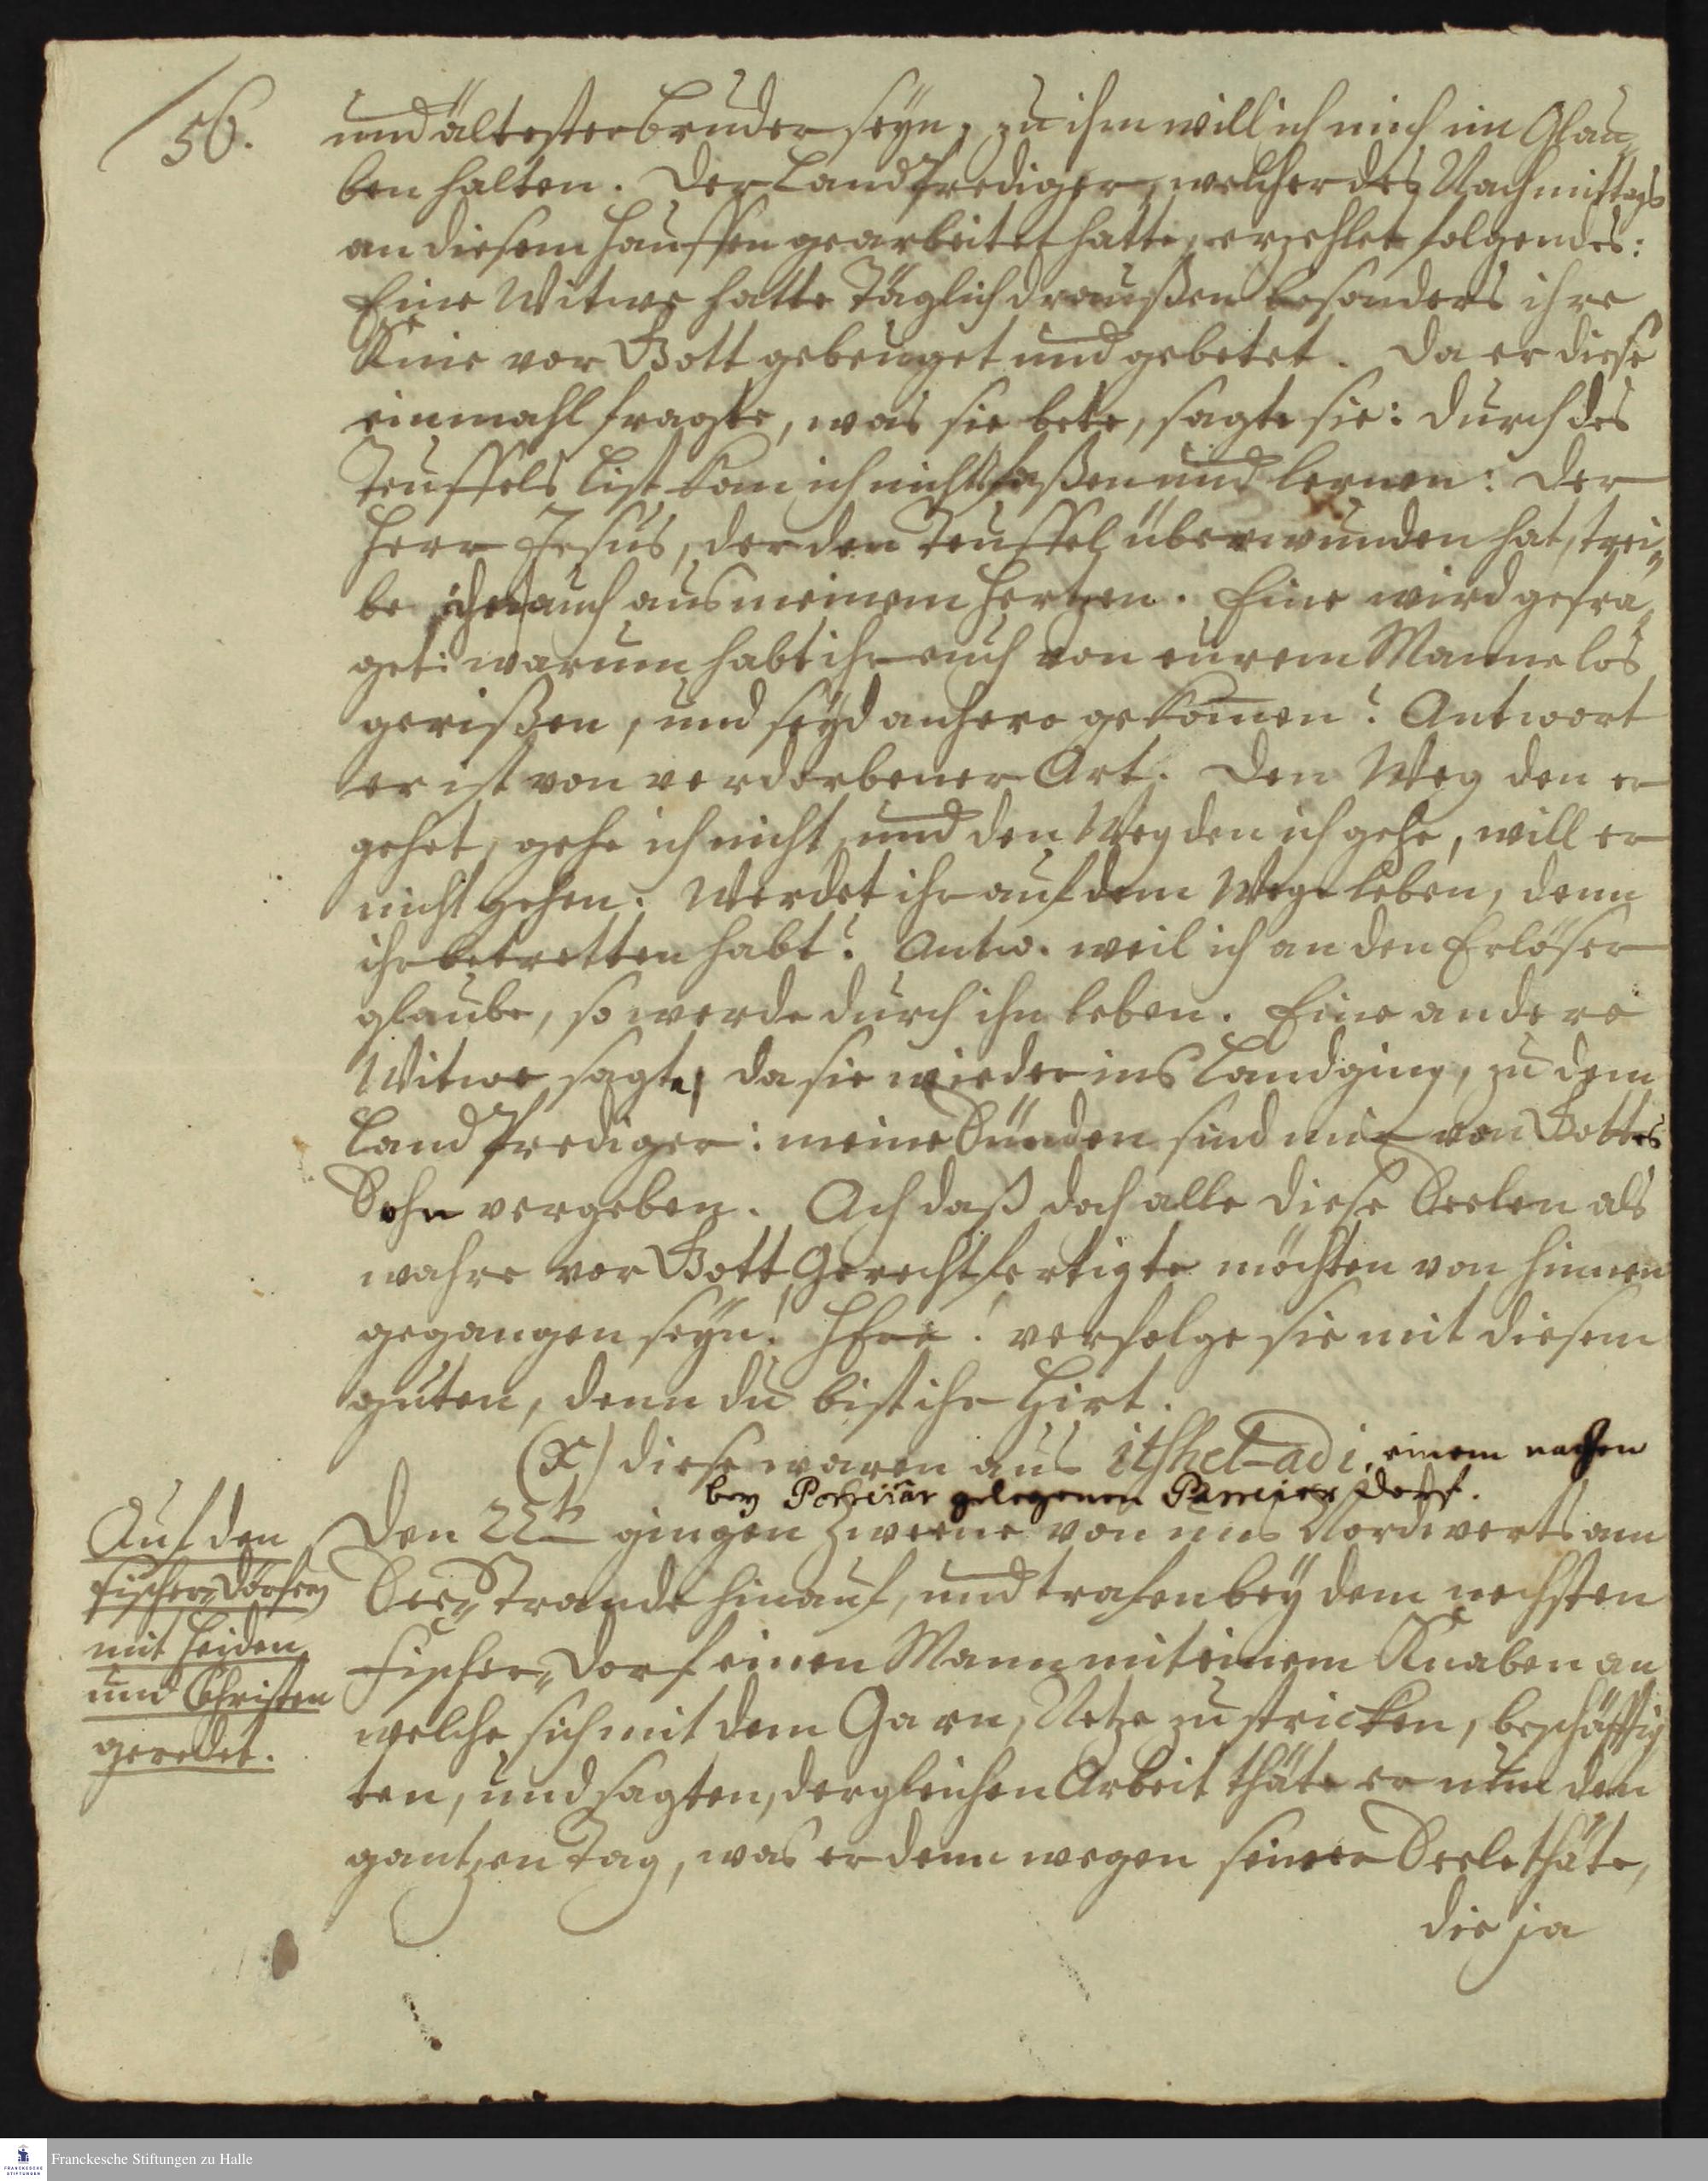 56.
und ältester bruder seyn, zu ihm will ich mich im Glau„
ben halten. Der Land Prediger, welcher des Nachmittags
an diesem Hauffen gearbeitet hatte, erzehlet folgendes:
Eine Witwe hatte täglich draußen besonders ihre
Knie vor Gott gebeuget und gebetet. Da er diese
einmahl fragte, was sie bete, sagte sie: durch des
Teuffels List kan ich nichts faßen und lernen: der
Herr Jesus, der den Teuffel überwunden hat, trei„
be ihn auch aus meinem Hertzen. Eine wird gefra„
get: warum habt ihr euch von eurem Manne los
gerißen, und seyd anhero gekomen? Antwort
er ist von verdorbener Art. Den Weg den er
gehet, gehe ich nicht, und den Weg den ich gehe, will er
nicht gehen. Werdet ihr auf dem Wege leben, denn
ihr betretten habt? Antw. weil ich an den Erlöser
glaube, so werde durch ihn leben. Eine andere
Witwe sagte, da sie wieder ins Land ging, zu dem
Land Prediger: meine Sünden sind mir von Gottes
Sohn vergeben. Ach daß doch alle diese Seelen als
wahre vor Gott Gerechtfertigte möchten von hinnen
gegangen seyn! HErr! verfolge sie mit diesem
guten, denn du bist ihr Hirt.
(x) diese waren aus itshel-adi, einem nahen
bey gelegenen Dorf.
Auf den
Fischer„Dörfern
mit Heiden
und Christen
geredet.
Den 22t gingen Zweene von uns Nordwerts am
See„Strande hinauf, und trafen bey dem nechsten
Fischer„Dorf einen Mann mit einem Knaben an
welche sich mit dem Garn, Netze zu stricken, beschäfftig
ten, und sagten, dergleichen Arbeit thäte er nun den
gantzen Tag, was er denn wegen seiner Seele thäte,
die ja
Franckesche Stiftungen zu Halle